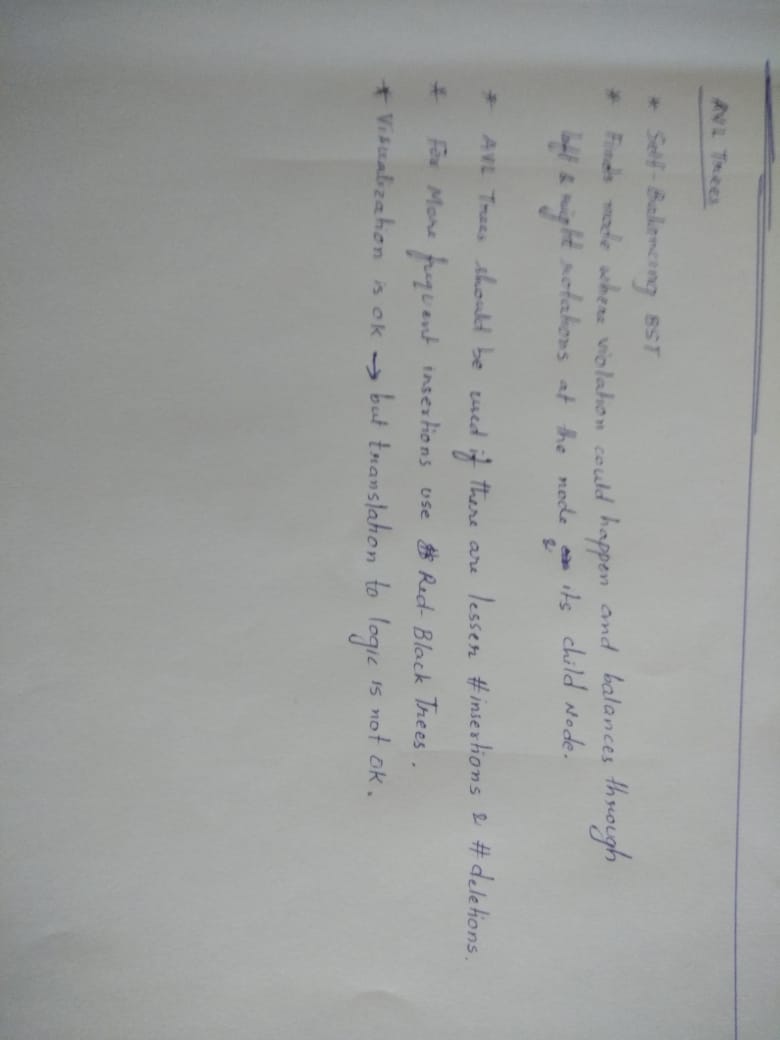 AVL Trees
* Self-Balancing BST
* Finds node where violation could happen and balances through
left & right rotations at the node & its child Node.
* AVL Trees should be used if there are lesser #insertions & #deletions.
* For More frequent insertions use Red-Black Trees.
* Visualization is ok → but translation to logic is not ok.